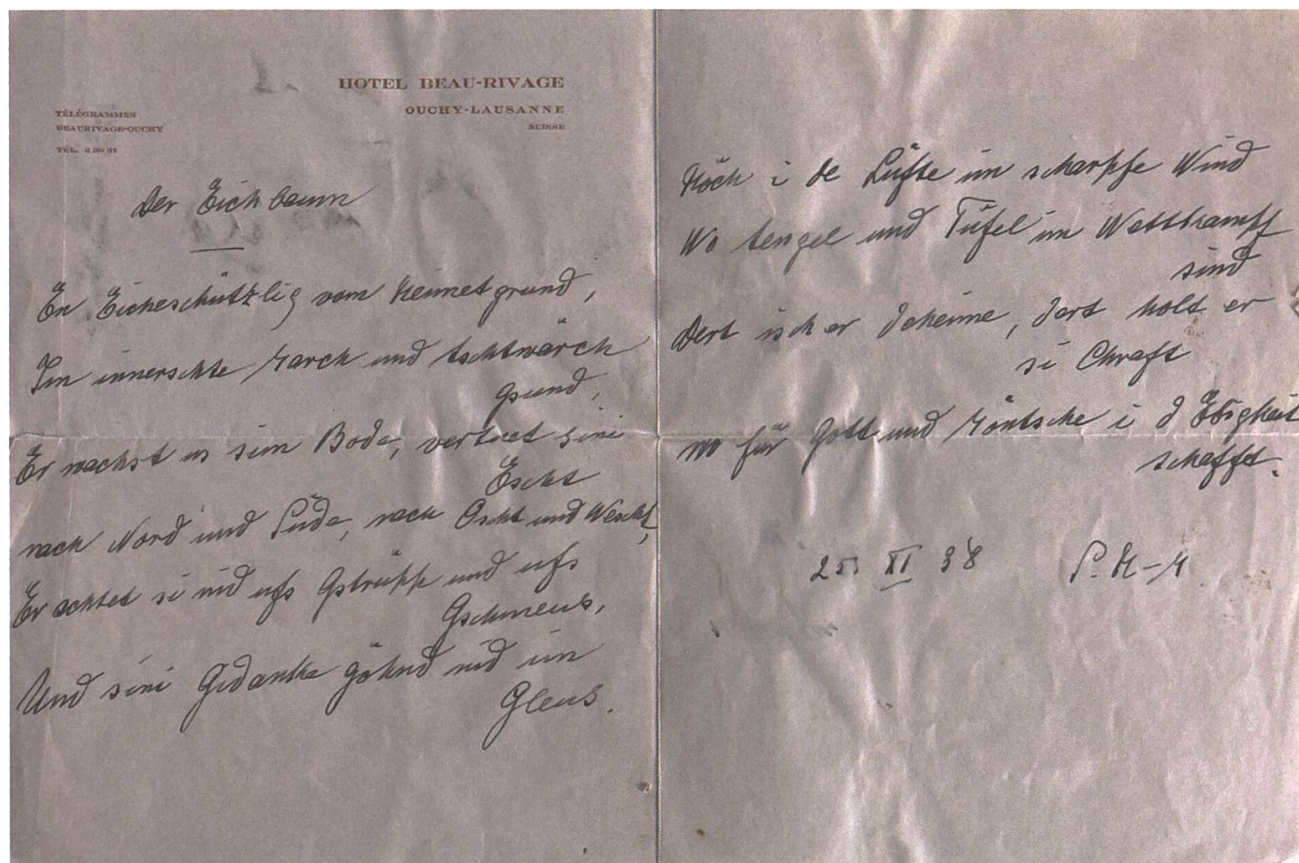 HOTEL BEAU-RIVAGE
OUCHY-LAUSANNE
SUISSE
TÉLÉGRAMMES
BEAURIVAGE-OUCHY
TÉL.
Der Eichbaum
En Eicheschützlig vom Heimetgrund,
Im innerschte March und
gsund,
Er wachst us sim Bode, verteet sini
Escht
nach Nord und Süde, nach Oscht und Wescht,
Er achtet si nid ufs Gstrüpp und ufs
Gschmeus,
Und sini Gedanke göhnd nid im
Gleus.
Höch i de Lüfte im scharpfe Wind
Wo Aengel und Tüfel im Wettkampf
sind
Dert isch er deheime, dert holt er
si Chraft
wo für Gott und Möntsche i d Ebigkeit
schafft.
25 XI 38 P. M-M